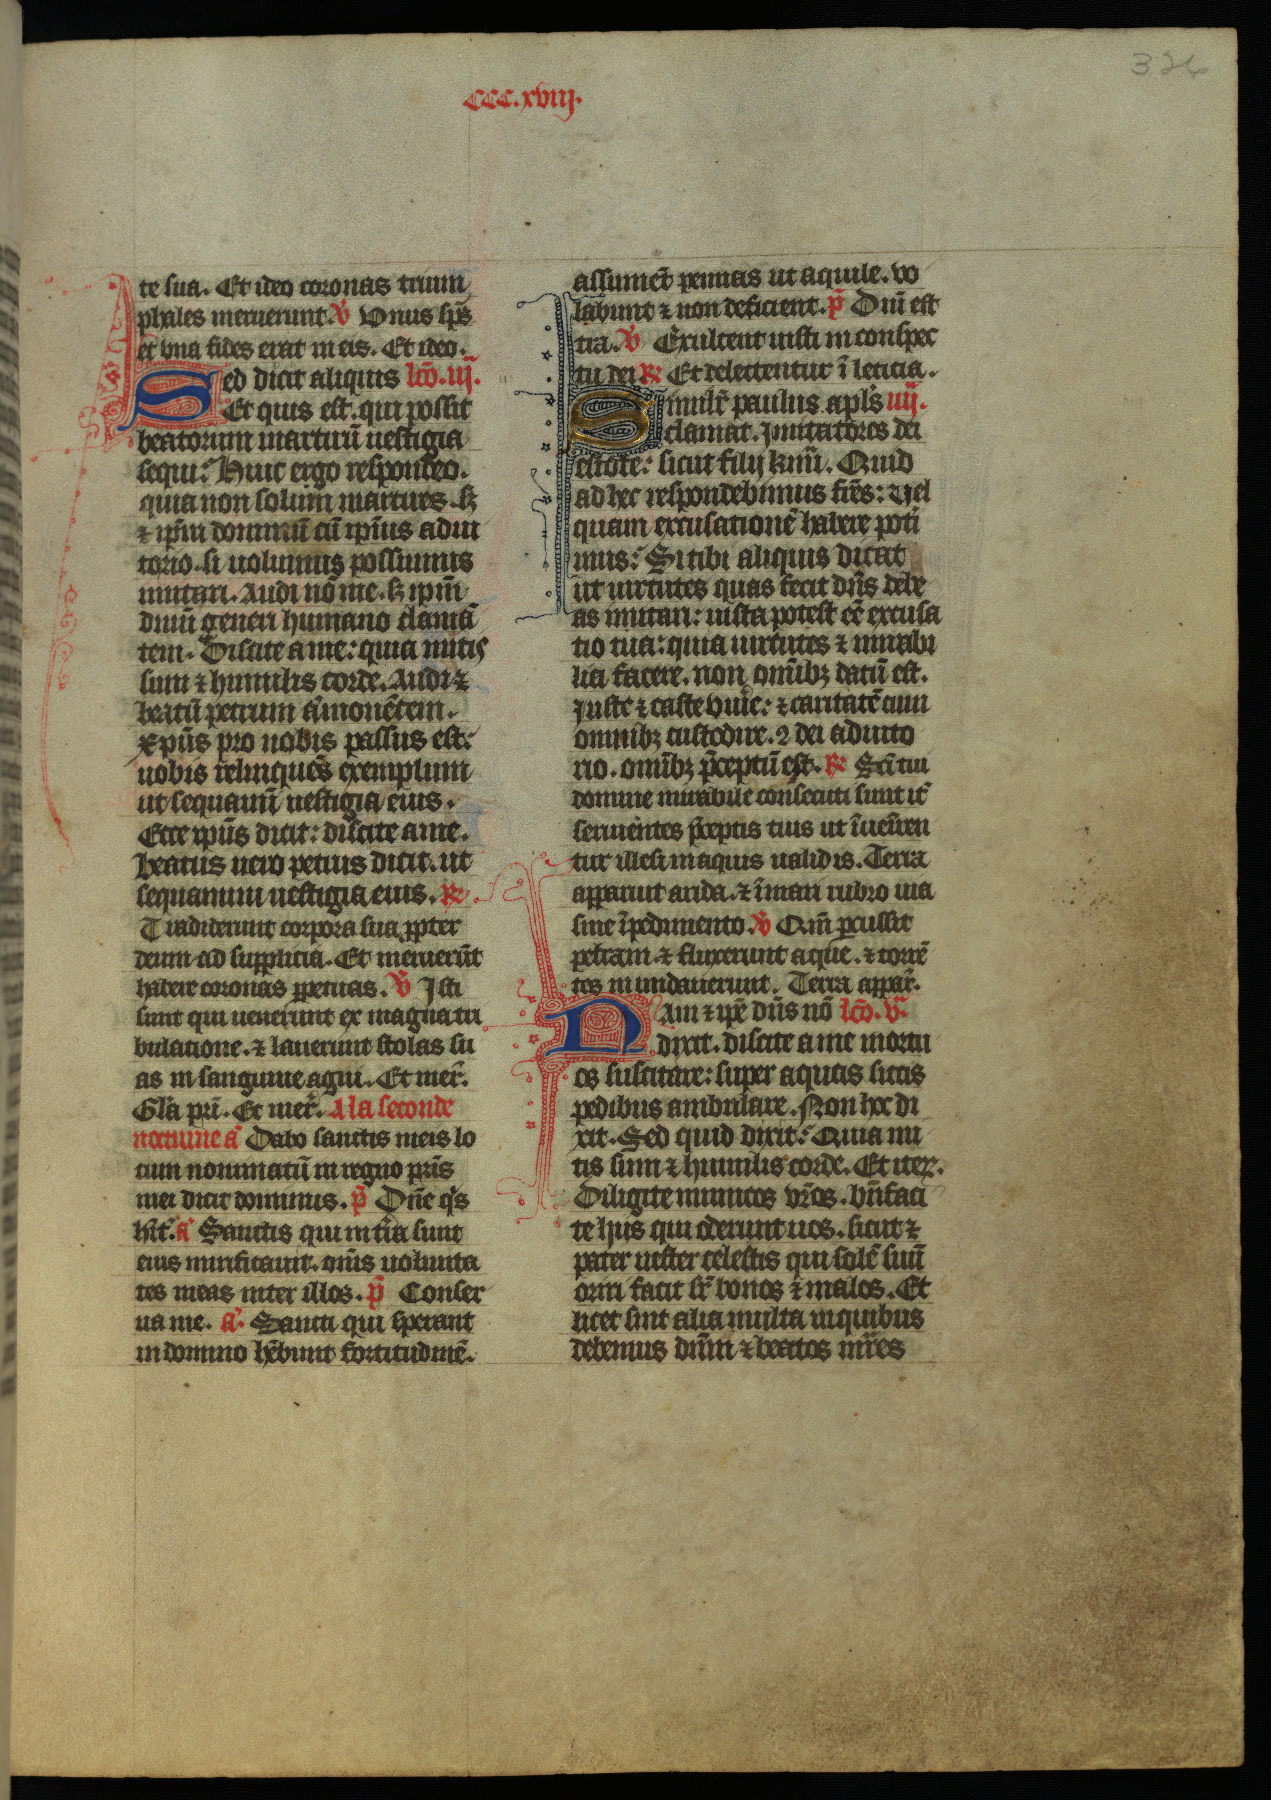 326
CCC.xviij.
te sua. Et ideo coronas trium
phales meruerunt. V̄ Vnus sp̄s
et vna fides erat in eis. Et ideo.
Sed dicit aliquis lc̄o. iij.
Et quis est. qui possit
beatorum martirū uestigia
sequi: Huic ergo respondeo.
quia non solum martires. sꝫ
⁊ ip̄m dominū cū ip̄ius adiu
torio. si uolumus possumus
imitari. Audi nō me. sꝫ ip̄m
dn̄m generi humano clamā
tem. Discite a me: quia mitis
sum ⁊ humilis corde. Audi ⁊
beatū petrum āmonētem.
xp̄us pro nobis passus est:
uobis relinquēs exemplum
ut sequamī uestigia eius.
Ecce xp̄us dicit: discite a me.
beatus uero petrus dicit. ut
sequamini uestigia eius. R̄
Tradiderunt corpora sua ꝓpter
deum ad supplicia. Et meruerūt
habere coronas ꝑpetuas. V̄ Isti
sunt qui uenerunt ex magna tri
bulatione. ⁊ lauerunt stolas su
as in sanguine agni. Et mer̄.
Gl̄a pr̄i. Et mer̄. A la seconde
nocturne ā Dabo sanctis meis lo
cum nominatū in regno pr̄is
mei dicit dominus. p̄ Dn̄e q̄s
hīt. ā Sanctis qui in tr̄a sunt
eius mirificauit. om̄s uolunta
tes meas inter illos. p̄ Conser
ua me. ā. Sancti qui sperant
in domino hēbunt fortitudinē.
assumēt pennas ut aquile. vo
labunt ⁊ non deficient. p̄ Dn̄i est
tr̄a. V̄ Exultent iusti in conspec
tu dei R̄ Et delectentur ī leticia.
Simulr̄ paulus apl̄s iiij.
clamat. Imitatores dei
estote: sicut filij kr̄mi. Quid
ad hec respondebimus fr̄es: Uel
quam excusationē habere poti
mus: Si tibi aliquis dicat
ut uirtutes quas fecit dn̄s debe
as imitari: iusta potest eē excusa
tio tua: quia uirtutes ⁊ mirabi
lia facere. non om̄ibꝫ datū est.
Iuste ⁊ caste viue: ⁊ caritatē cum
omnibꝫ custodire. 2 dei adiuto
rio. om̄ibꝫ p̄ceptū est. R̄ Sc̄i tui
domine mirabile consecuti sunt it̄
seruientes p̄ceptis tuis ut īueniren
tur illesi in aquis ualidis. Terra
apparuit arida. ⁊ ī mari rubro uia
sine īpedimento. V̄ Qm̄ ꝑcussit
petram. ⁊ fluxerunt aque. ⁊ torrē
tes inundauerunt. Terra appar̄.
Nam ⁊ ip̄e dn̄s nō lc̄o. v.
dixit. discite a me mortu
os suscitare: super aquas siccis
pedibus ambulare. Non hec di
xit. Sed quid dixit: Quia mi
tis sum ⁊ humilis corde. Et iteꝝ.
Diligite inimicos vr̄os. bn̄faci
te hijs qui oderunt uos. sicut ⁊
pater uester celestis qui solē suū
oriri facit sr̄ bonos ⁊ malos. Et
licet sint alia multa in quibus
debemus dn̄m ⁊ beatos mr̄es